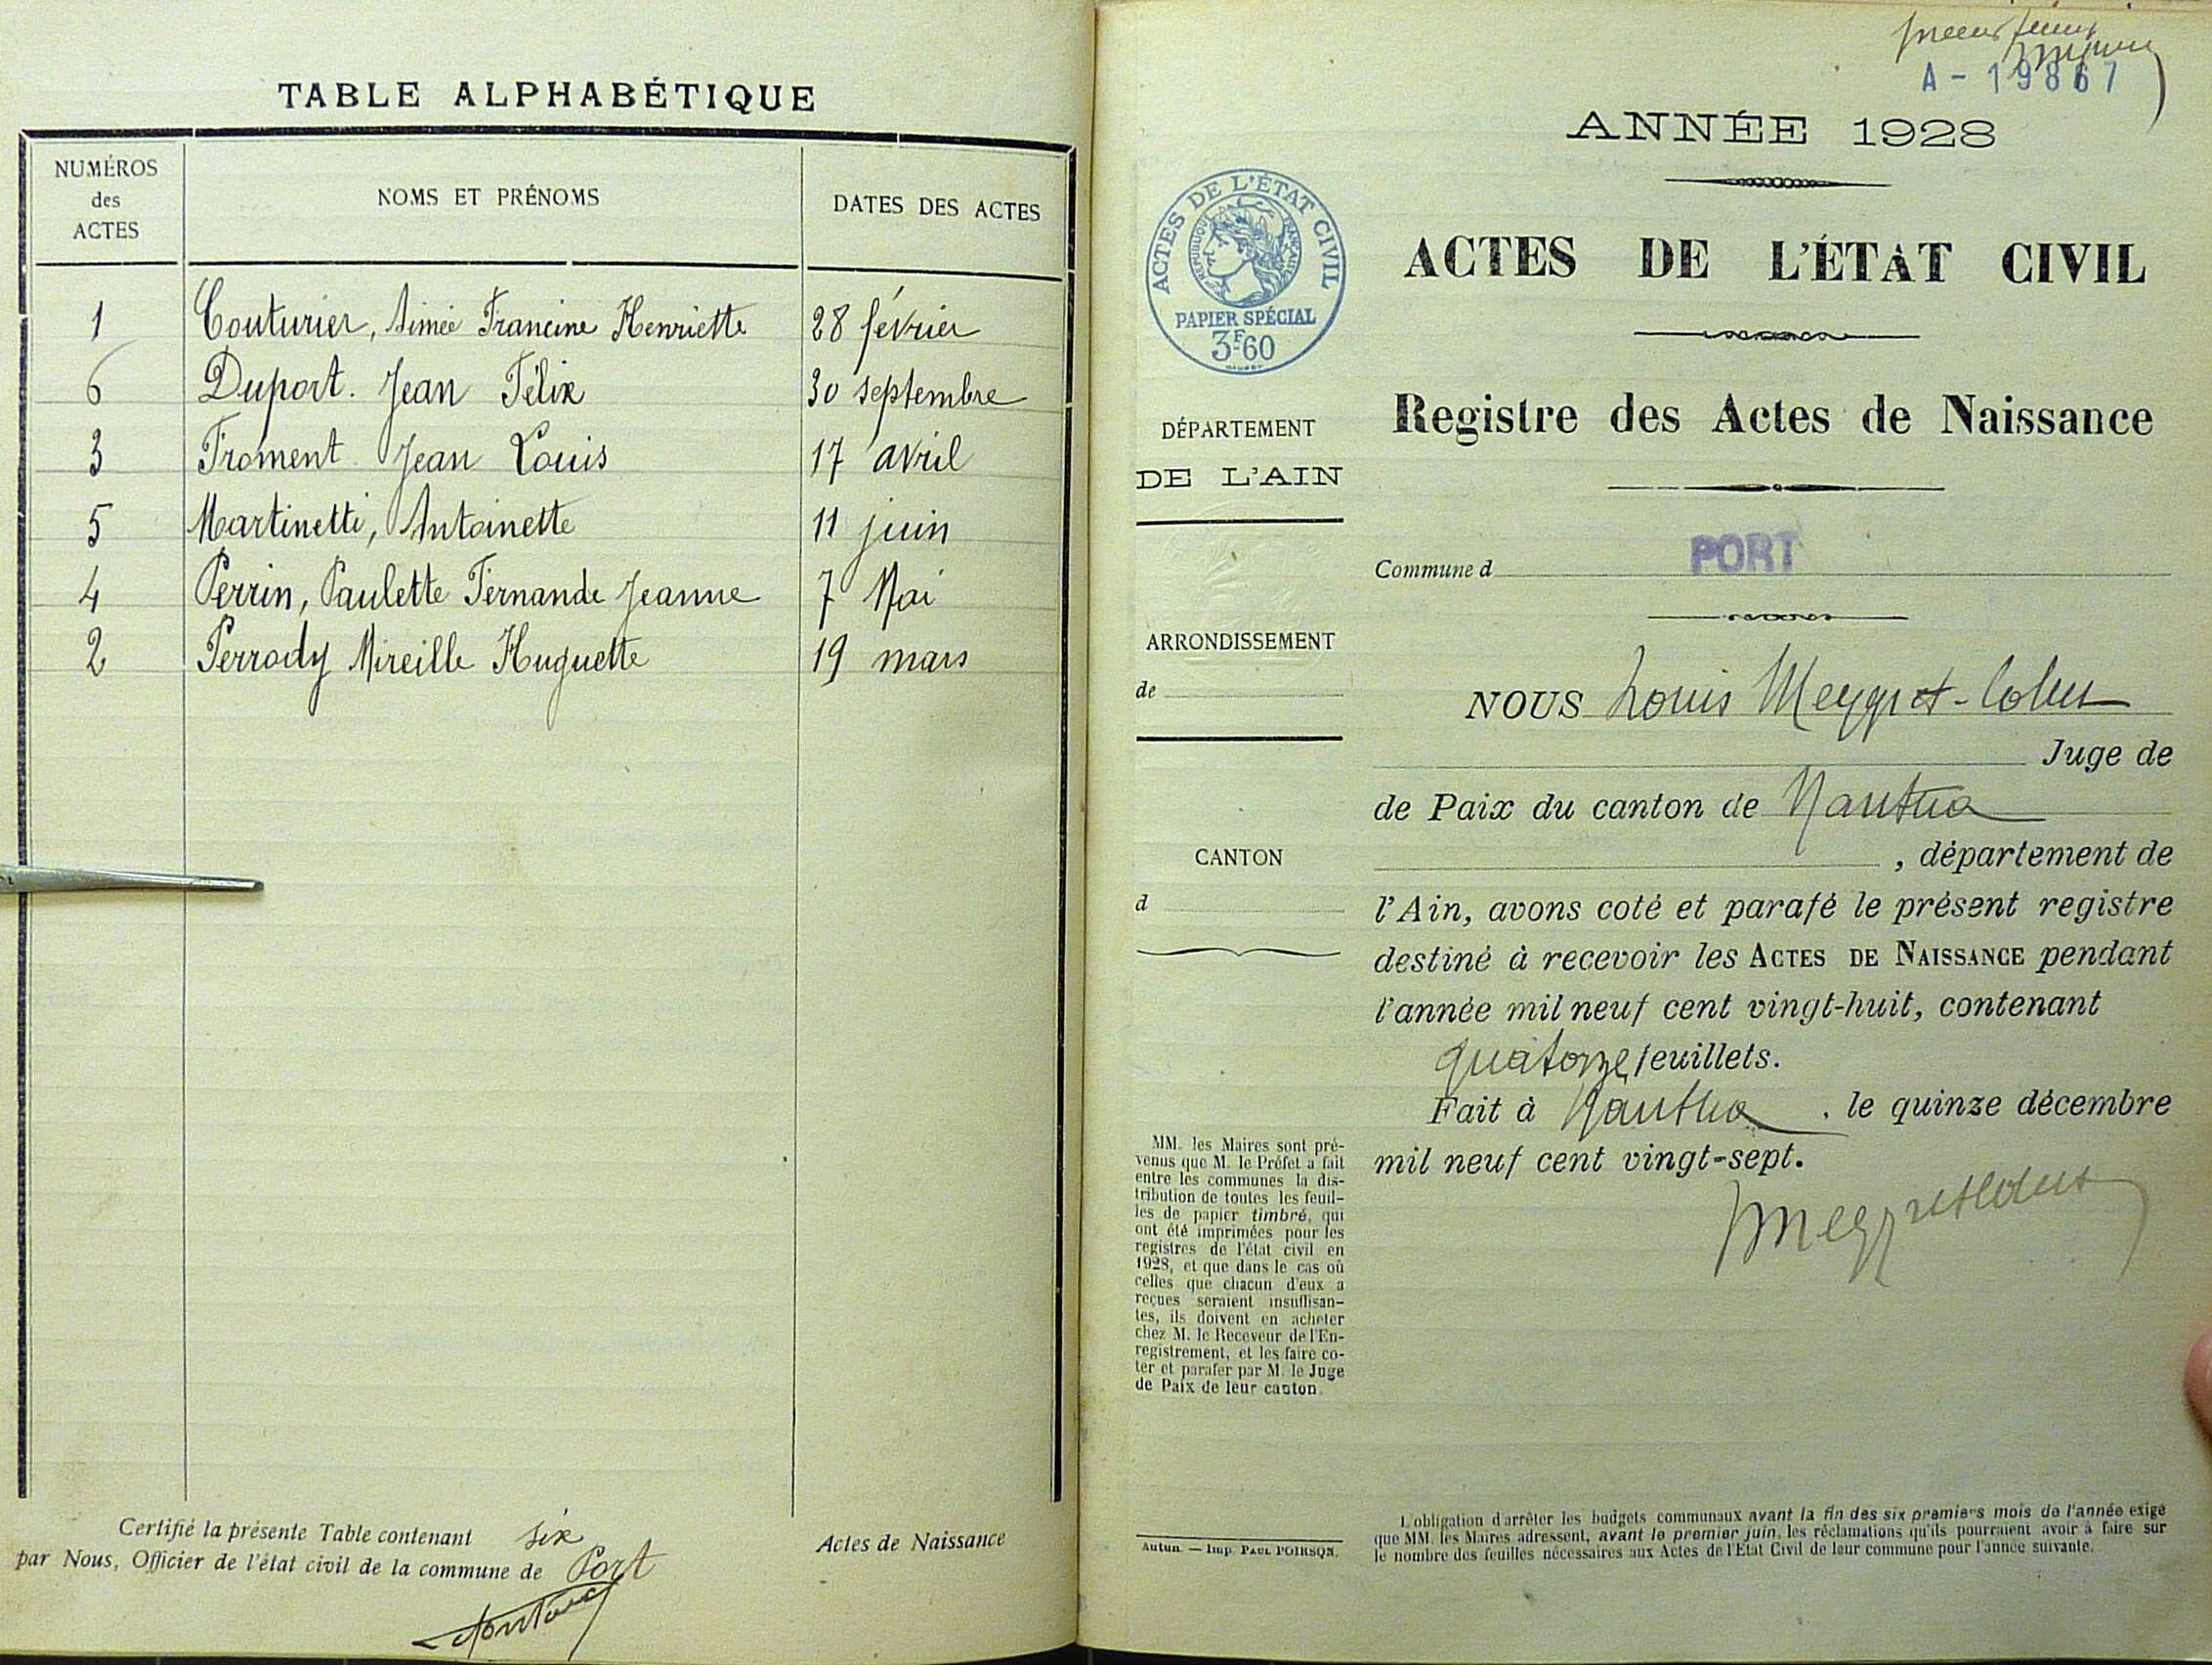 TABLE ALPHABÉTIQUE
NUMÉROS des ACTES
NOMS ET PRÉNOMS
DATES DES ACTES
1 Couturier, Aimée Francine Henriette 28 février
6 Duport. Jean Félix 30 septembre
3 Froment Jean Louis 17 avril
5 Martinetti, Antoinette 11 juin
4 Perrin, Paulette Fernande Jeanne 7 Mai
2 Perrody Mireille Huguette 19 mars
Certifié la présente Table contenant six Actes de Naissance
par Nous, Officier de l'état civil de la commune de Port
A - 19867
ANNÉE 1928
ACTES DE L'ÉTAT CIVIL
RÉPUBLIQUE FRANÇAISE
PAPIER SPÉCIAL
3F60
ACTES DE L'ÉTAT CIVIL
Registre des Actes de Naissance
DÉPARTEMENT
DE L'AIN
Commune d PORT
ARRONDISSEMENT
de
CANTON
d
NOUS Louis Meygret-Collet
Juge de
de Paix du canton de Nantua
, département de
l'Ain, avons coté et parafé le présent registre
destiné à recevoir les ACTES DE NAISSANCE pendant
l'année mil neuf cent vingt-huit, contenant
quatorze feuillets.
Fait à Nantua, le quinze décembre
mil neuf cent vingt-sept.
MM. les Maires sont pré-
venus que M. le Préfet a fait
entre les communes la dis-
tribution de toutes les feuil-
les de papier timbré, qui
ont été imprimées pour les
registres de l'état civil en
1928, et que dans le cas où
celles que chacun d'eux a
reçues seraient insuffisan-
tes, ils doivent en acheter
chez M. le Receveur de l'En-
registrement, et les faire co-
ter et parafer par M. le Juge
de Paix de leur canton.
Autun. — Imp. PAUL POIRSON.
L'obligation d'arrêter les budgets communaux avant la fin des six premiers mois de l'année exige
que MM. les Maires adressent, avant le premier juin, les réclamations qu'ils pourraient avoir à faire sur
le nombre des feuilles nécessaires aux Actes de l'Etat Civil de leur commune pour l'année suivante.